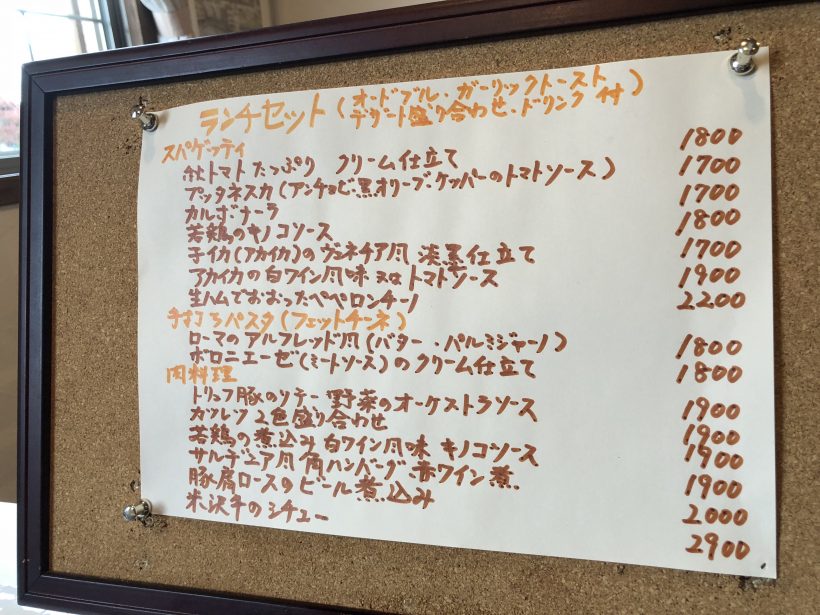 ランチセット(オードブル・ガーリックトースト
デザート盛り合わせ・ドリンク付)
スパゲッティ
トマトたっぷり クリーム仕立て 1800
プッタネスカ(アンチョビ・黒オリーブ・ケッパーのトマトソース) 1700
カルボナーラ 1700
若鶏のキノコソース 1800
子イカ(アカイカ)のヴェネチア風 漆黒仕立て 1700
アカイカの白ワイン風味 又はトマトソース 1900
生ハムでおおったペペロンチーノ 2200
手打ちパスタ(フェットチーネ)
ローマのアルフレッド風(バター・パルミジャーノ) 1800
ボロニエーゼ(ミートソース)のクリーム仕立て 1800
肉料理
トリュフ豚のソテー 野菜のオーケストラソース 1900
カツレツ 2色盛り合わせ 1900
若鶏の煮込み 白ワイン風味 キノコソース 1900
サルヂニア風角ハンバーグ、赤ワイン煮。 1900
豚肩ロースのビール煮込み 2000
米沢牛のシチュー 2900